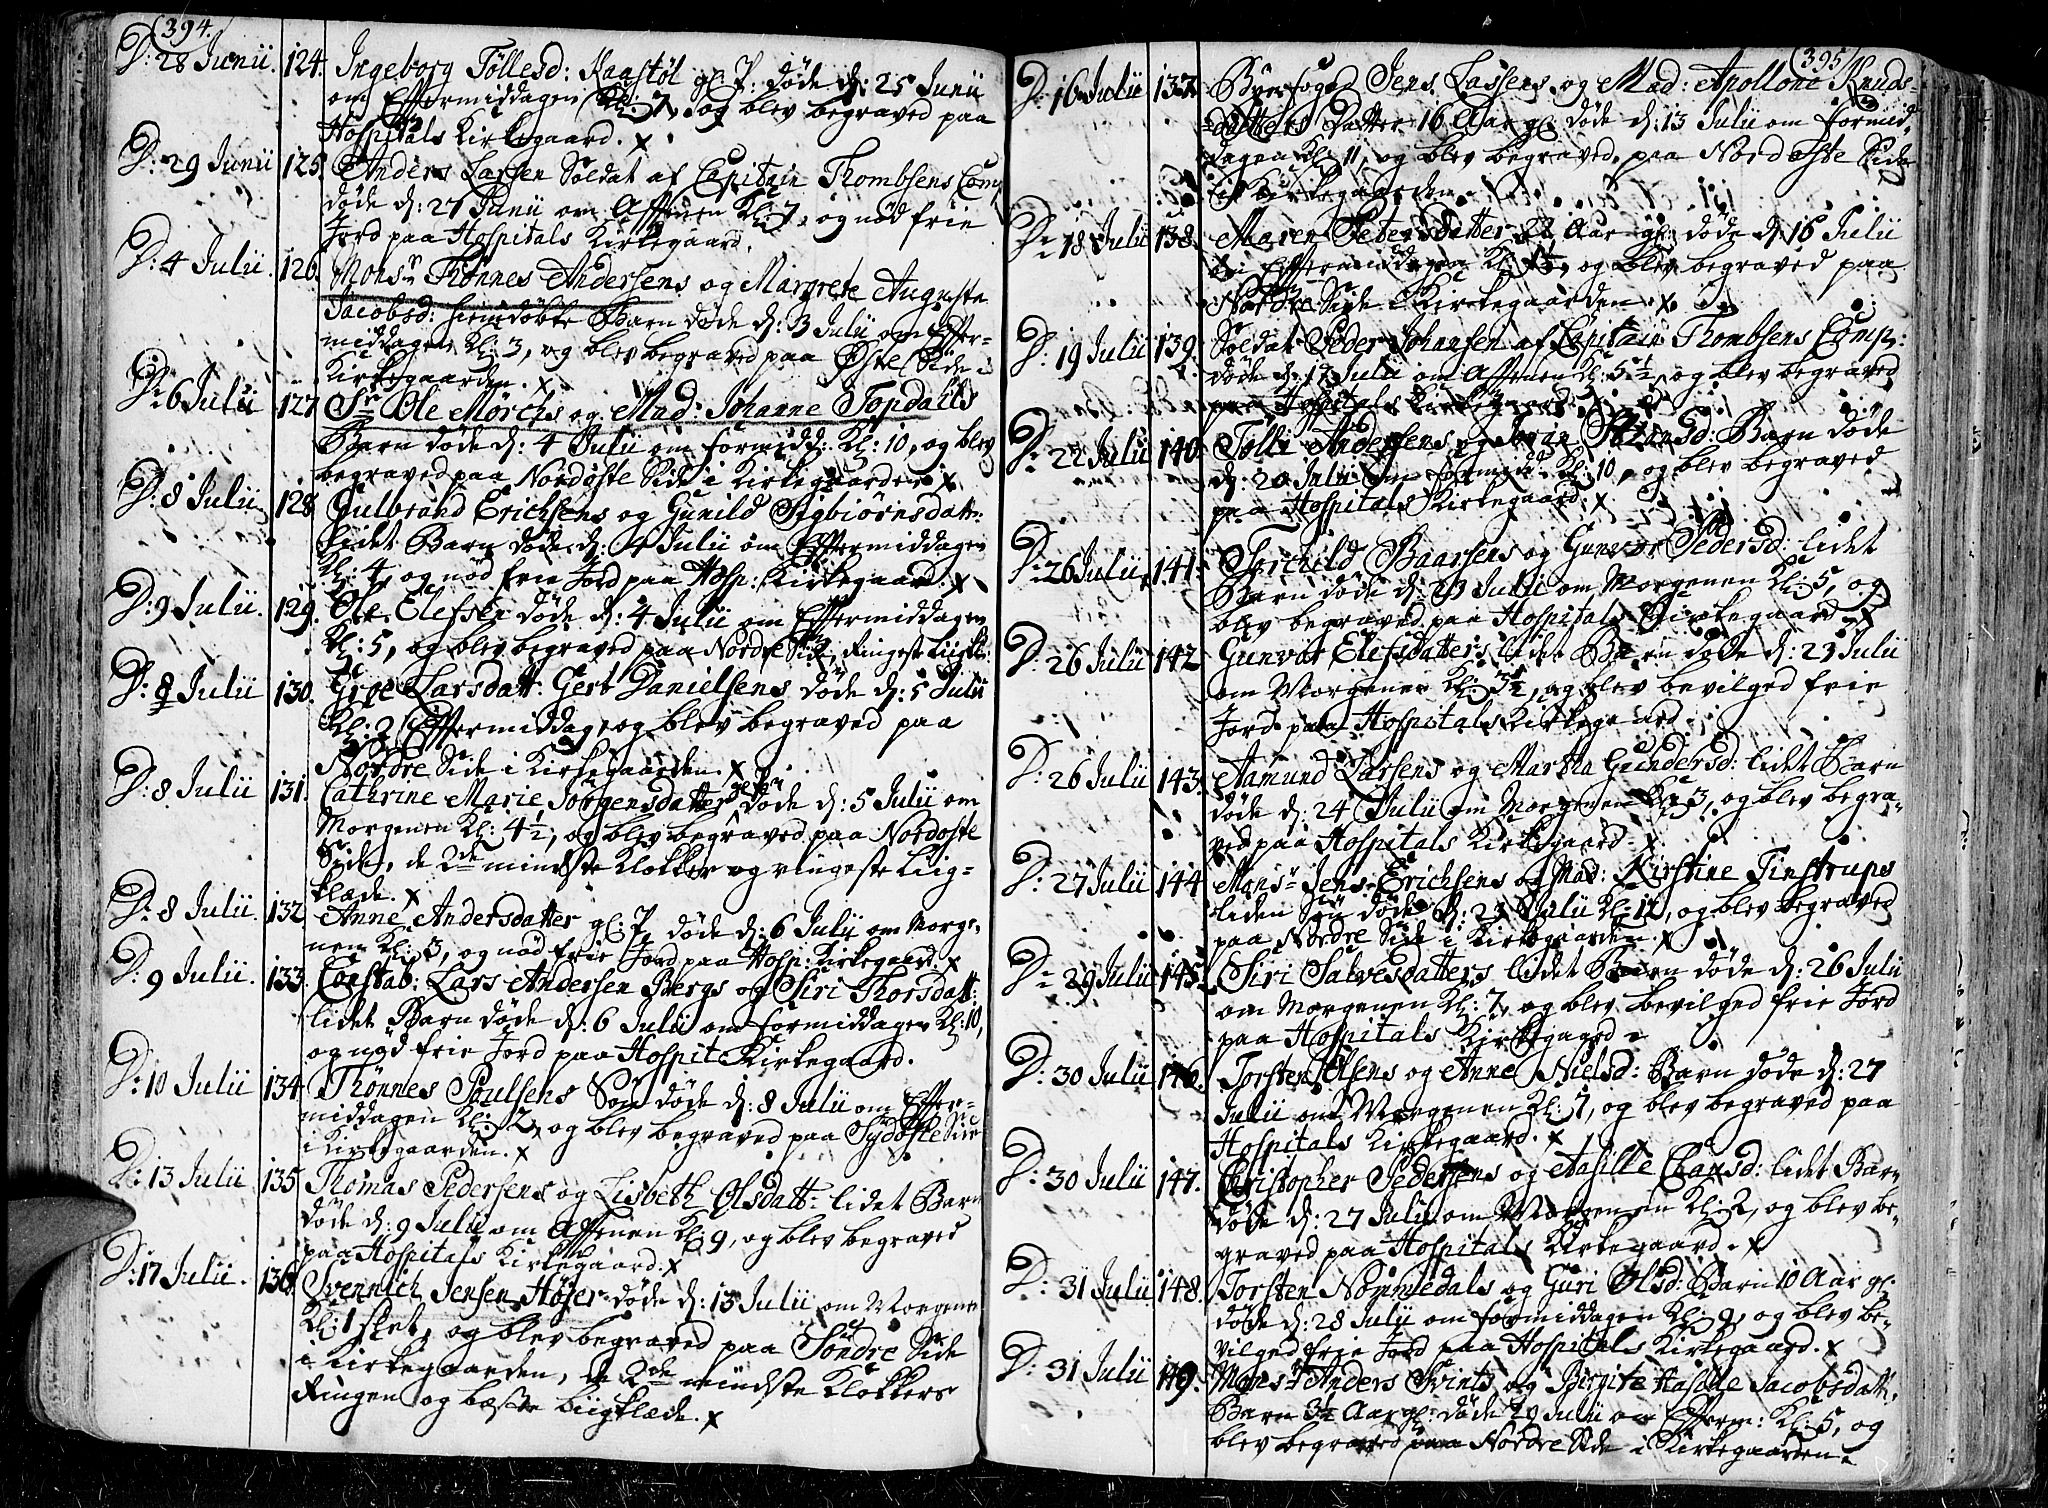 394.
D: 28 Junii. 124. Ingeborg Tøllesd: Raastøl gl: 7. døde d: 25 Junii
om Efftermiddagen Kl: 7, og blev begraved paa
Hospitals Kirkegaard. x
D: 29 Junii 125. Anders Larsen Soldat af Capitain Thombsens Comp
døde d: 27 Junii om Afftenen Kl: 7, og nød frie
Jord paa Hospitals Kirkegaard.
D: 4 Julii. 126. Monsr Thønnes Andersens og Margrete Auguste
Jacobsd: hiemdøbte Barn døde d: 3 Julii om Effter-
middagen Kl: 3, og blev begraved paa Øste Side i
Kirkegaarden. x
D: 6 Julii 127 Sr Ole Mørchs og Mad: Johanne Topdahls
Barn døde d: 4 Julii om formidd: Kl: 10, og blev
begraved paa Nordøste Side i Kirkegaarden. x
D: 8 Julii. 128. Gulbrand Erichsens og Gunild Sigbiørnsdatt:
lidet Barn døde d: 4 Julii om Efftermiddagen
Kl: 4, og nød frie Jord paa Hosp: Kirkegaard. x
D: 9 Julii. 129. Ole Elefsen døde d: 4 Julii om Efftermiddagen
Kl: 5, og blev begraved paa Nordre Side, Ringeste Liigkl:
D: 8 Julii 130. Groe Larsdatt: Gert Danielsens døde d: 5 Julii
Kl: 2 Efftermiddag, og blev begraved paa
Nordre Side i Kirkegaarden. x
D: 8 Julii 131. Cathrine Marie Jørgensdatter døde d: 5 Julii om
Morgenen Kl: 4½, og blev begraved paa Nordoste
Side, de 2de mindste Klokker og ringeste Liig-
klæde. x
D: 8 Julii. 132 Anne Andersdatter gl: 7, døde d: 6 Julii om Morge-
nen Kl: 3, og nød frie Jord paa Hosp: Kirkegaard. x
D: 9 Julii. 133. Constab: Lars Andersen Bergs og Siri Thorsdatt:
lidet Barn døde d: 6 Julii om formiddagen Kl: 10,
og nød frie Jord paa Hospit: Kirkegaard.
D: 10 Julii 134 Thønnes Poulsens Søn døde d: 8 Julii om Effter-
middagen Kl: 2, og blev begraved paa Sydøste Side
i Kirkegaarden. x
D: 13 Julii 135 Thomas Pedersens og Lisbeth Olsdatt: lidet Barn
døde d: 9 Julii om Afftenen Kl: 9, og blev begraved
paa Hospitals Kirkegaard. x
D: 17 Julii. 136. Svennich Jensen Høyer døde d: 15 Julii om Morgenen
Kl: 1 slet, og blev begraved paa Søndre Side
i Kirkegaarden, de 2de mindste Klokkers
Ringen og beste Liigklæde. x
395
D: 16 Julii 137. Byefoged Jens Lassens og Mad: Apolloni Knuds-
datters Datter 16 Aar gl: døde d: 13 Julii om formid-
dagen Kl: 11, og blev begraved paa Nordøste Side
i Kirkegaarden.
D: 18 Julii 138. Maren Petersdatter 22 Aar gl: døde d: 16 Julii
om Efftermiddagen Kl: og blev begraved paa
Nordre Side i Kirkegaarden. x
D: 19 Julii 139. Soldat Peder Johansen af Capitain Thombsens Comp:
døde d: 17 Julii om Afftenen Kl: 5½, og blev begraved
paa Hospitals Kirkegaard.
D: 22 Julii 140. Tolli Andersens og Barn døde
d: 20 Julii om formidd: Kl: 10, og blev begraved
paa Hospitals Kirkegaard. x
D: 26 Julii 141. Torchild Baarsens og Gunvor Pedersd: lidet
Barn døde d: 23 Julii om Morgenen Kl: 5, og
blev begraved paa Hospitals Kirkegaard. x
D: 26 Julii 142 Gunvor Elefsdatters lidet Barn døde d: 23 Julii
om Morgenen Kl: 3½, og blev bevilged frie
Jord paa Hospitals Kirkegaard.
D: 26 Julii 143. Aamund Larsens og Martha Gundersd: lidet Barn
døde d: 24 Julii om Morgenen Kl: 3, og blev begra-
ved paa Hospitals Kirkegaard. x
D: 27 Julii 144 Monsr Jens Erichsens og Mad: Kirstine Finstrups
liden Søn døde d: 23 Julii Kl: 12, og blev begraved
paa Nordre Side i Kirkegaarden. x
D: 29 Julii 145. Siri Salvesdatters lidet Barn døde d: 26 Julii
om Morgenen Kl: 7, og blev bevilged frie Jord
paa Hospitals Kirkegaard.
D: 30 Julii 146. Torsten Olsens og Anne Nielsd: Barn døde d: 27
Julii om Morgenen Kl: 7, og blev begraved paa
Hospitals Kirkegaard. x
D: 30 Julii 147. Christopher Pedersens og Aasille Hansd: lidet Barn
døde d: 27 Julii om Morgenen Kl: 2, og blev be-
graved paa Hospitals Kirkegaard. x
D: 31 Julii 148. Torsten Nommedals og Guri Olsd: Barn 10 Aar gl:
døde d: 28 Julii om formiddagen Kl: 9, og blev be-
vilged frie Jord paa Hospitals Kirkegaard. x
D: 31 Julii 149. Monsr Anders Svints og Birgite Jacobsdatt:
Barn 3½ Aar gl: døde 29 Julii om Effterm: Kl: 5, og
blev begraved paa Nordre Side i Kirkegaarden.